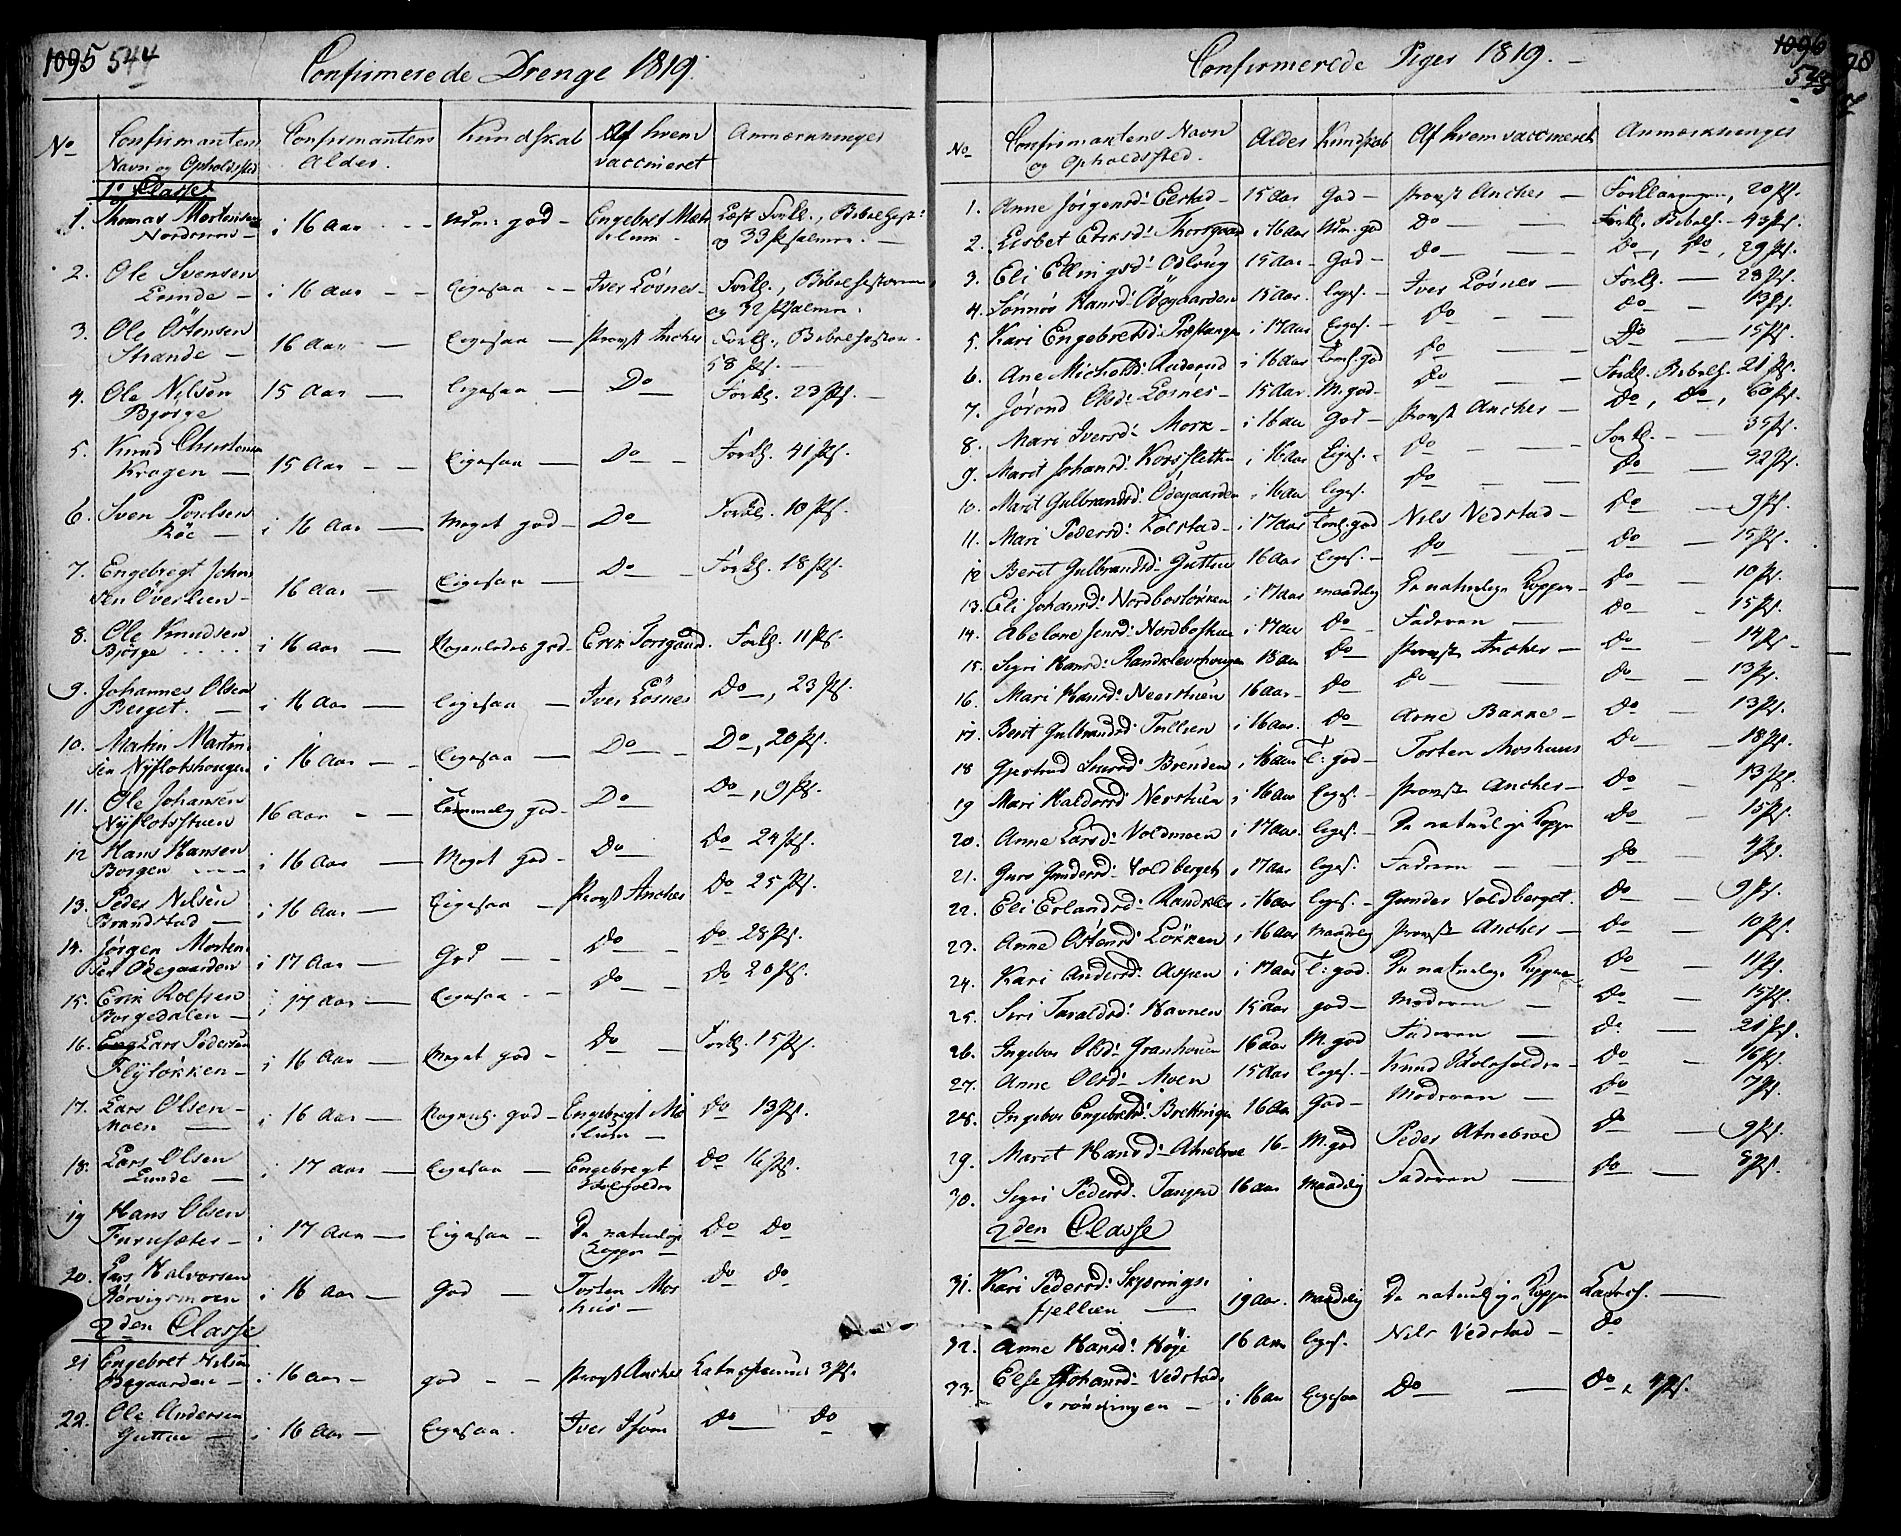 1095 544
Confirmerede Drenge 1819.
No Confirmantens Navn og Opholdsted Confirmantens Alder. Kundskab Af hvem vaccineret Anmærkninger
1ste Classe
1. Thomas Mortensen Nordrum i 16 Aar god Engebret
og 33 Psalmer.
2. Ole Svensen Lunde i 16 Aar Ligesaa Iver Lösnes Forkl., Bibelhistorien, og 42 Psalmer.
3. Ole Östensen Strande 16 Aar Ligesaa Provst Ancher Forkl., Bibelhistor. 58 Ps.
4. Ole Nilsen Bjorge 15 Aar Ligesaa Do Forkl. 23 Ps.
5. Knud Christensen Krogen 15 Aar Ligesaa Do Forkl. 41 Ps.
6. Sven Poulsen i 16 Aar Meget god Do Forkl. 10 Ps.
7. Engebregt Johnsen Överlien 16 Aar Ligesaa Do Forkl. 18 Ps.
8. Ole Knudsen Bjorge i 16 Aar Nogenledes god Erik Torsgaard Forkl. 11 Ps.
9. Johannes Olsen Berget i 16 Aar Ligesaa Iver Lösnes Do, 23 Ps.
10. Martin Martinsen Nyflotshougen i 16 Aar Ligesaa Do Do, 20 Ps.
11. Ole Johansen Nyflotsstuen 16 Aar Temmelig god Do Do, 9 Ps.
12 Hans Hansen Borgen i 16 Aar Meget god Do Do 24 Ps.
13. Peder Nilsen Brandstad i 16 Aar Ligesaa Provst Ancher Do 25 Ps.
14. Jörgen Mortensen Ödegaarden i 17 Aar God Do Do 28 Ps.
15. Erik Rolfsen Borgedalen i 17 Aar Ligesaa Do Do 20 Ps.
16. Lars Pedersen Flÿtökken i 16 Aar Meget god Do Forkl. 15 Ps.
17. Lars Olsen Moen i 16 Aar god Engebregt Do 13 Ps.
18. Lars Olsen Lunde i 17 Aar Ligesaa Engebregt Skoleholder Do 16 Ps.
19 Hans Olsen Furusæter i 17 Aar Ligesaa De naturlige Kopper Do Do
20. Lars Halvorsen i 16 Aar God Torsten Moshus Do Do
2den Classe
21 Engebret Nilsen i 16 aar god Provst Ancher Catechismus 3 Ps.
22. Ole Andersen Guttue i 16 Aar Ligesaa. Iver Do Do
1096
545
Confirmerede Piger 1819.
No Confirmantens Navn og Opholdssted. Alder Kundskab Af hvem vaccineret Anmærkninger
1. Anne Jörgensd: Elstad 15 Aar God Provst Ancher Forklaringen, 20 Ps.
2. Lisbet Eriksd: Thorsgaard i 16 aar god Do Forkl. Bibelh. 43 Ps.
3. Eli Ellingsd: Odloug 15 Aar God Do Do, Do, 29 Ps.
4. Sönnöv Hansd: Ödegaarden 15 Aar. Liges. Iver Lösnes Forkl. 23 Ps.
5. Kari Engebretsd: Præstangen i 17 Aar Liges. Do Do 13 Ps.
6. Ane Michelsd: i 16 aar Teml. god Do Do 15 Ps.
7. Jörond Olsd: Lösnes 15 Aar M. god Do Forkl. Bibelh. 21 Ps.
8. Mari Iversd: Mork i 16 aar God Provst Ancher Do, Do, 60 Ps.
9. Marit Johansd: Korsflethen i 16 Aar Liges. Do Forkl. 35 Ps.
10. Marit Gulbrandsd: Ödegaarden i 16 aar liges. Do Do 32 Ps.
11. Mari Pedersd: Kolstad i 17 aar Teml: god Nils Vedstad Do 9 Ps.
12 Berit Gulbrandsd: Guttue 16 aar Liges. Do Do 15 Ps.
13. Eli Johansd: Nordbostökken i 17 aar maadelig De naturlige Kopper Do 10 Ps.
14. Abelone Jensd: Nordbostuen i 17 aar Do Faderen Do 15 Ps.
15. Sigri Hansd: Randklevhougen 18 aar Do Provst Ancher Do 14 Ps.
16. Mari Hansd: Neerstuen 16 aar Do Do Do 13 Ps.
17. Berit Gulbrandsd: i 16 aar. Do Arne Bakke Do 13 Ps.
18 Gjertrud Brenden i 16 aar T: god Torsten Moshuus Do 18 Ps.
19 Mari Haldorsd: Nerstuen i 16 aar Liges. Provst Ancher Do 13 Ps.
20. Anne Larsd: Voldmoen i 17 Aar. liges. De naturlige Kopper Do 15 Ps.
21. Guro Gundersd: Voldberget i 17 aar liges. Faderen Do 4 Ps.
22. Eli Erlandsd: Randklev i 16 aar liges. Gunder Voldberget. Do 9 Ps.
23. Anne Ostensd: Lökken i 16 aar maadelig Provst Ancher Do 10 Ps.
24. Kari Andersd: Aspen i 17 aar T: god De naturlige Kopper Do 11 Ps.
25. Siri Taraldsd: Havnen 15 aar god Moderen Do 15 Ps.
26. Ingebor Olsd: Granhouen 16 aar M. god Faderen Do 21 Ps.
27. Anne Olsd: Moen 15 Aar Liges. Knud Skoleholder Do 16 Ps.
28. Ingebor Engebretsd: 16 aar God Moderen Do 7 Ps.
29. Maret Hansd: Atnebroe 16 M. god Peder Atnebroe Do 9 Ps.
30. Sigri Pedersd. Tangen 16 aar Maadelig Faderen Do 8 Ps.
2den Classe
31. Kari Pedersd: fjellien 19 aar. Maadelig De naturlige Kopper Catech.
32. Anne Hansd: Höje 16 aar Liges. Nils Vedstad Do
33. Else Johansd: Vedstads rönningen i 16 aar Ligesaa Do Do, 4 Ps.